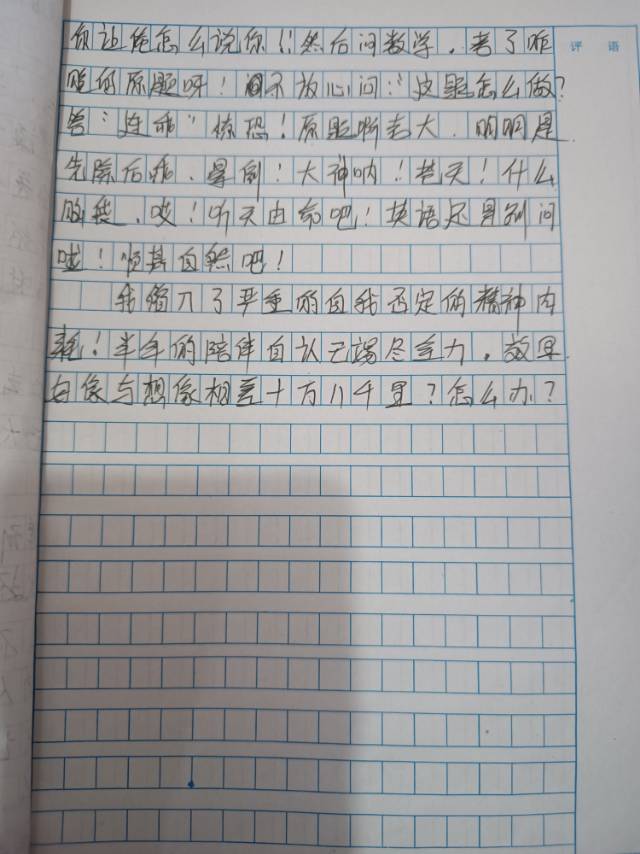 评 语
你让俺怎么说你!!然后问数学,考了昨
晚的原题呀!不放心问:"这题怎么做?
答"连乘"惊恐!原题啊老大,明明是
先除后乘,晕倒!大神呐!老天!什么
,哎!听天由命吧!英语还是别问
啦!顺其自然吧!
我陷入了严重的自我否定的精神内
耗!半年的陪伴自认已竭尽全力,效果
好像与想像相差十万八千里?怎么办?